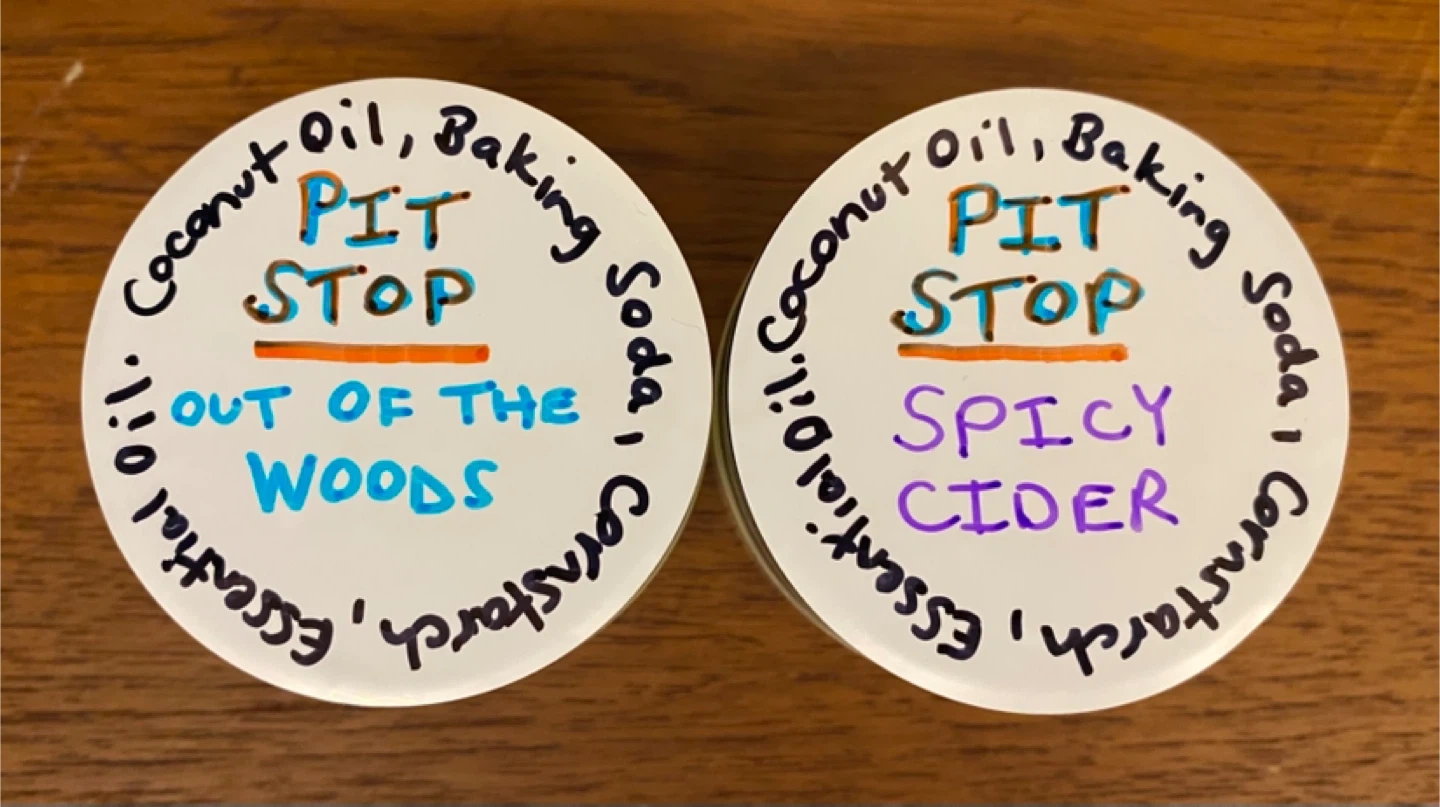 Coconut Oil, Baking Soda, Cornstarch, Essential Oil.
PIT
STOP
OUT OF THE
WOODS
Coconut Oil, Baking Soda, Cornstarch, Essential Oil.
PIT
STOP
SPICY
CIDER